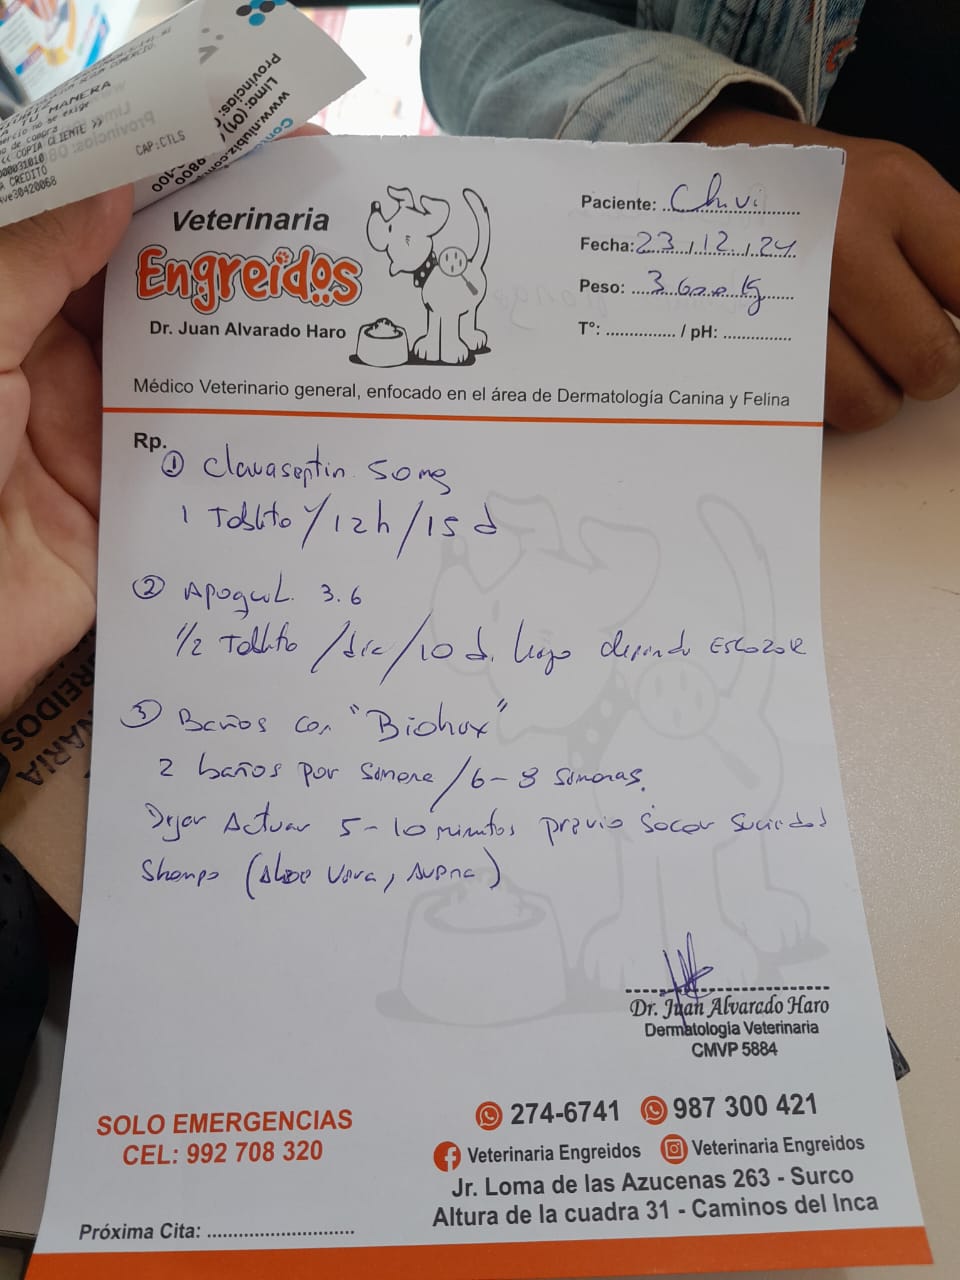 A TU MANERA
<< COPIA CLIENTE >>
CAP:CTLS
Lima: (01)
Provincias:
Veterinaria
Engreidos
Dr. Juan Alvarado Haro
Médico Veterinario general, enfocado en el área de Dermatología Canina y Felina
Paciente: Chivi
Fecha: 23 / 12 / 24
Peso: 3.600 Kg
T°: .............. / pH: ..............
Rp.
① Clavaseptin 50 mg
1 Tablita / 12 h / 15 d
② Apoquel 3.6
1/2 Tablita / día / 10 d. luego depende Escozor
③ Baños con "Biohex"
2 baños por semana / 6 - 8 semanas.
Dejar Actuar 5 - 10 minutos previo Sacar Suciedad
Shampo (Aloe Vera, Avena)
Dr. Juan Alvarado Haro
Dermatología Veterinaria
CMVP 5884
SOLO EMERGENCIAS
CEL: 992 708 320
274-6741 987 300 421
Veterinaria Engreidos Veterinaria Engreidos
Jr. Loma de las Azucenas 263 - Surco
Altura de la cuadra 31 - Caminos del Inca
Próxima Cita: ............................